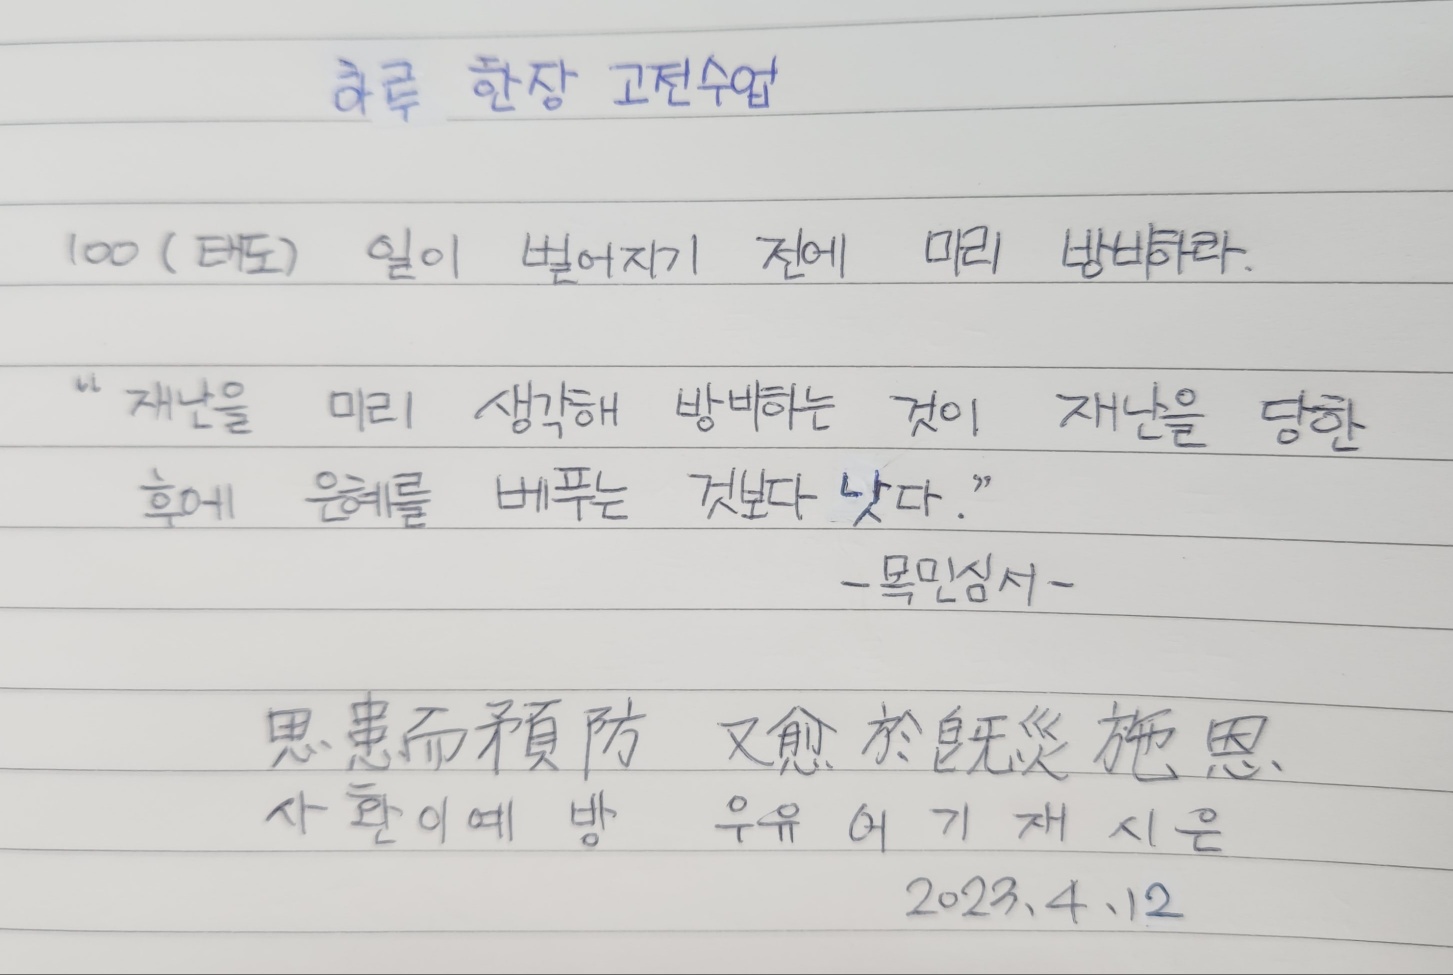 하루 한장 고전수업
100 (태도) 일이 벌어지기 전에 미리 방비하라.
“재난을 미리 생각해 방비하는 것이 재난을 당한
후에 은혜를 베푸는 것보다 낫다.”
-목민심서-
思患而預防 又愈於旣災施恩
사환이예방 우유어기재시은
2023. 4. 12